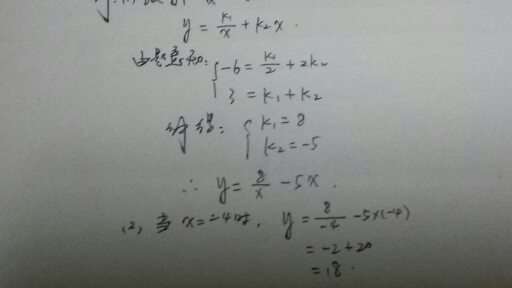 y = k₁/x + k₂x.
由题意知: { -6 = k₁/2 + 2k₂
3 = k₁ + k₂
解得: { k₁ = 8
k₂ = -5
∴ y = 8/x - 5x.
(2) 当 x = -4时, y = 8/-4 - 5×(-4)
= -2 + 20
= 18.